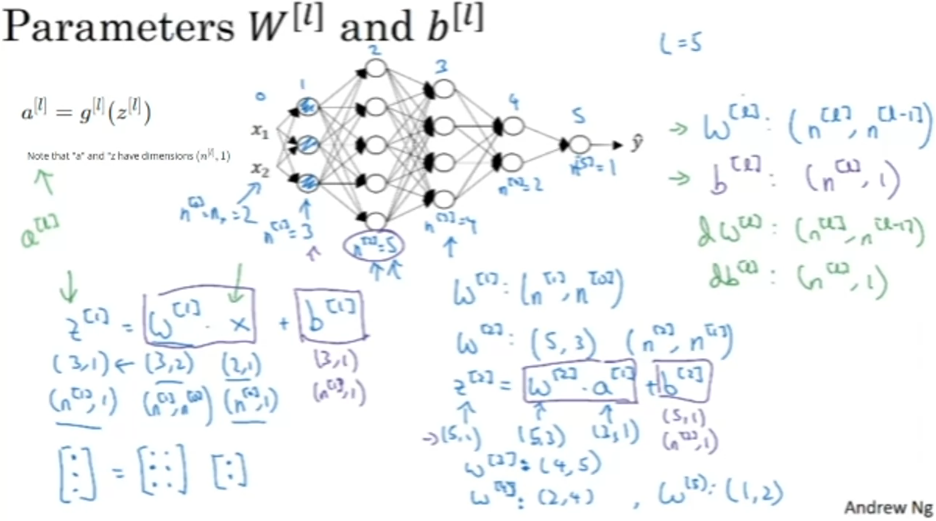 Parameters W^[l] and b^[l]
L=5
a^[l] = g^[l](z^[l])
Note that "a" and "z have dimensions (n^[l], 1)
a^[l]
0 1 2 3 4 5
x₁
x₂
ŷ
n^[0]=nₓ=2
n^[1]=3
n^[2]=5
n^[3]=4
n^[4]=2
n^[5]=1
→ W^[l]: (n^[l], n^[l-1])
→ b^[l]: (n^[l], 1)
dW^[l]: (n^[l], n^[l-1])
db^[l]: (n^[l], 1)
z^[1] = W^[1] · x + b^[1]
(3,1) ← (3,2) (2,1) (3,1)
(n^[1],1) (n^[1],n^[0]) (n^[0],1) (n^[1],1)
[⋮] = [⋮ ⋮] [:]
W^[1]: (n^[1], n^[0])
W^[2]: (5,3) (n^[2], n^[1])
z^[2] = W^[2] · a^[1] + b^[2]
→(5,1) (5,3) (3,1) (5,1)
(n^[2],1)
W^[3]: (4,5)
W^[4]: (2,4) , W^[5]: (1,2)
Andrew Ng